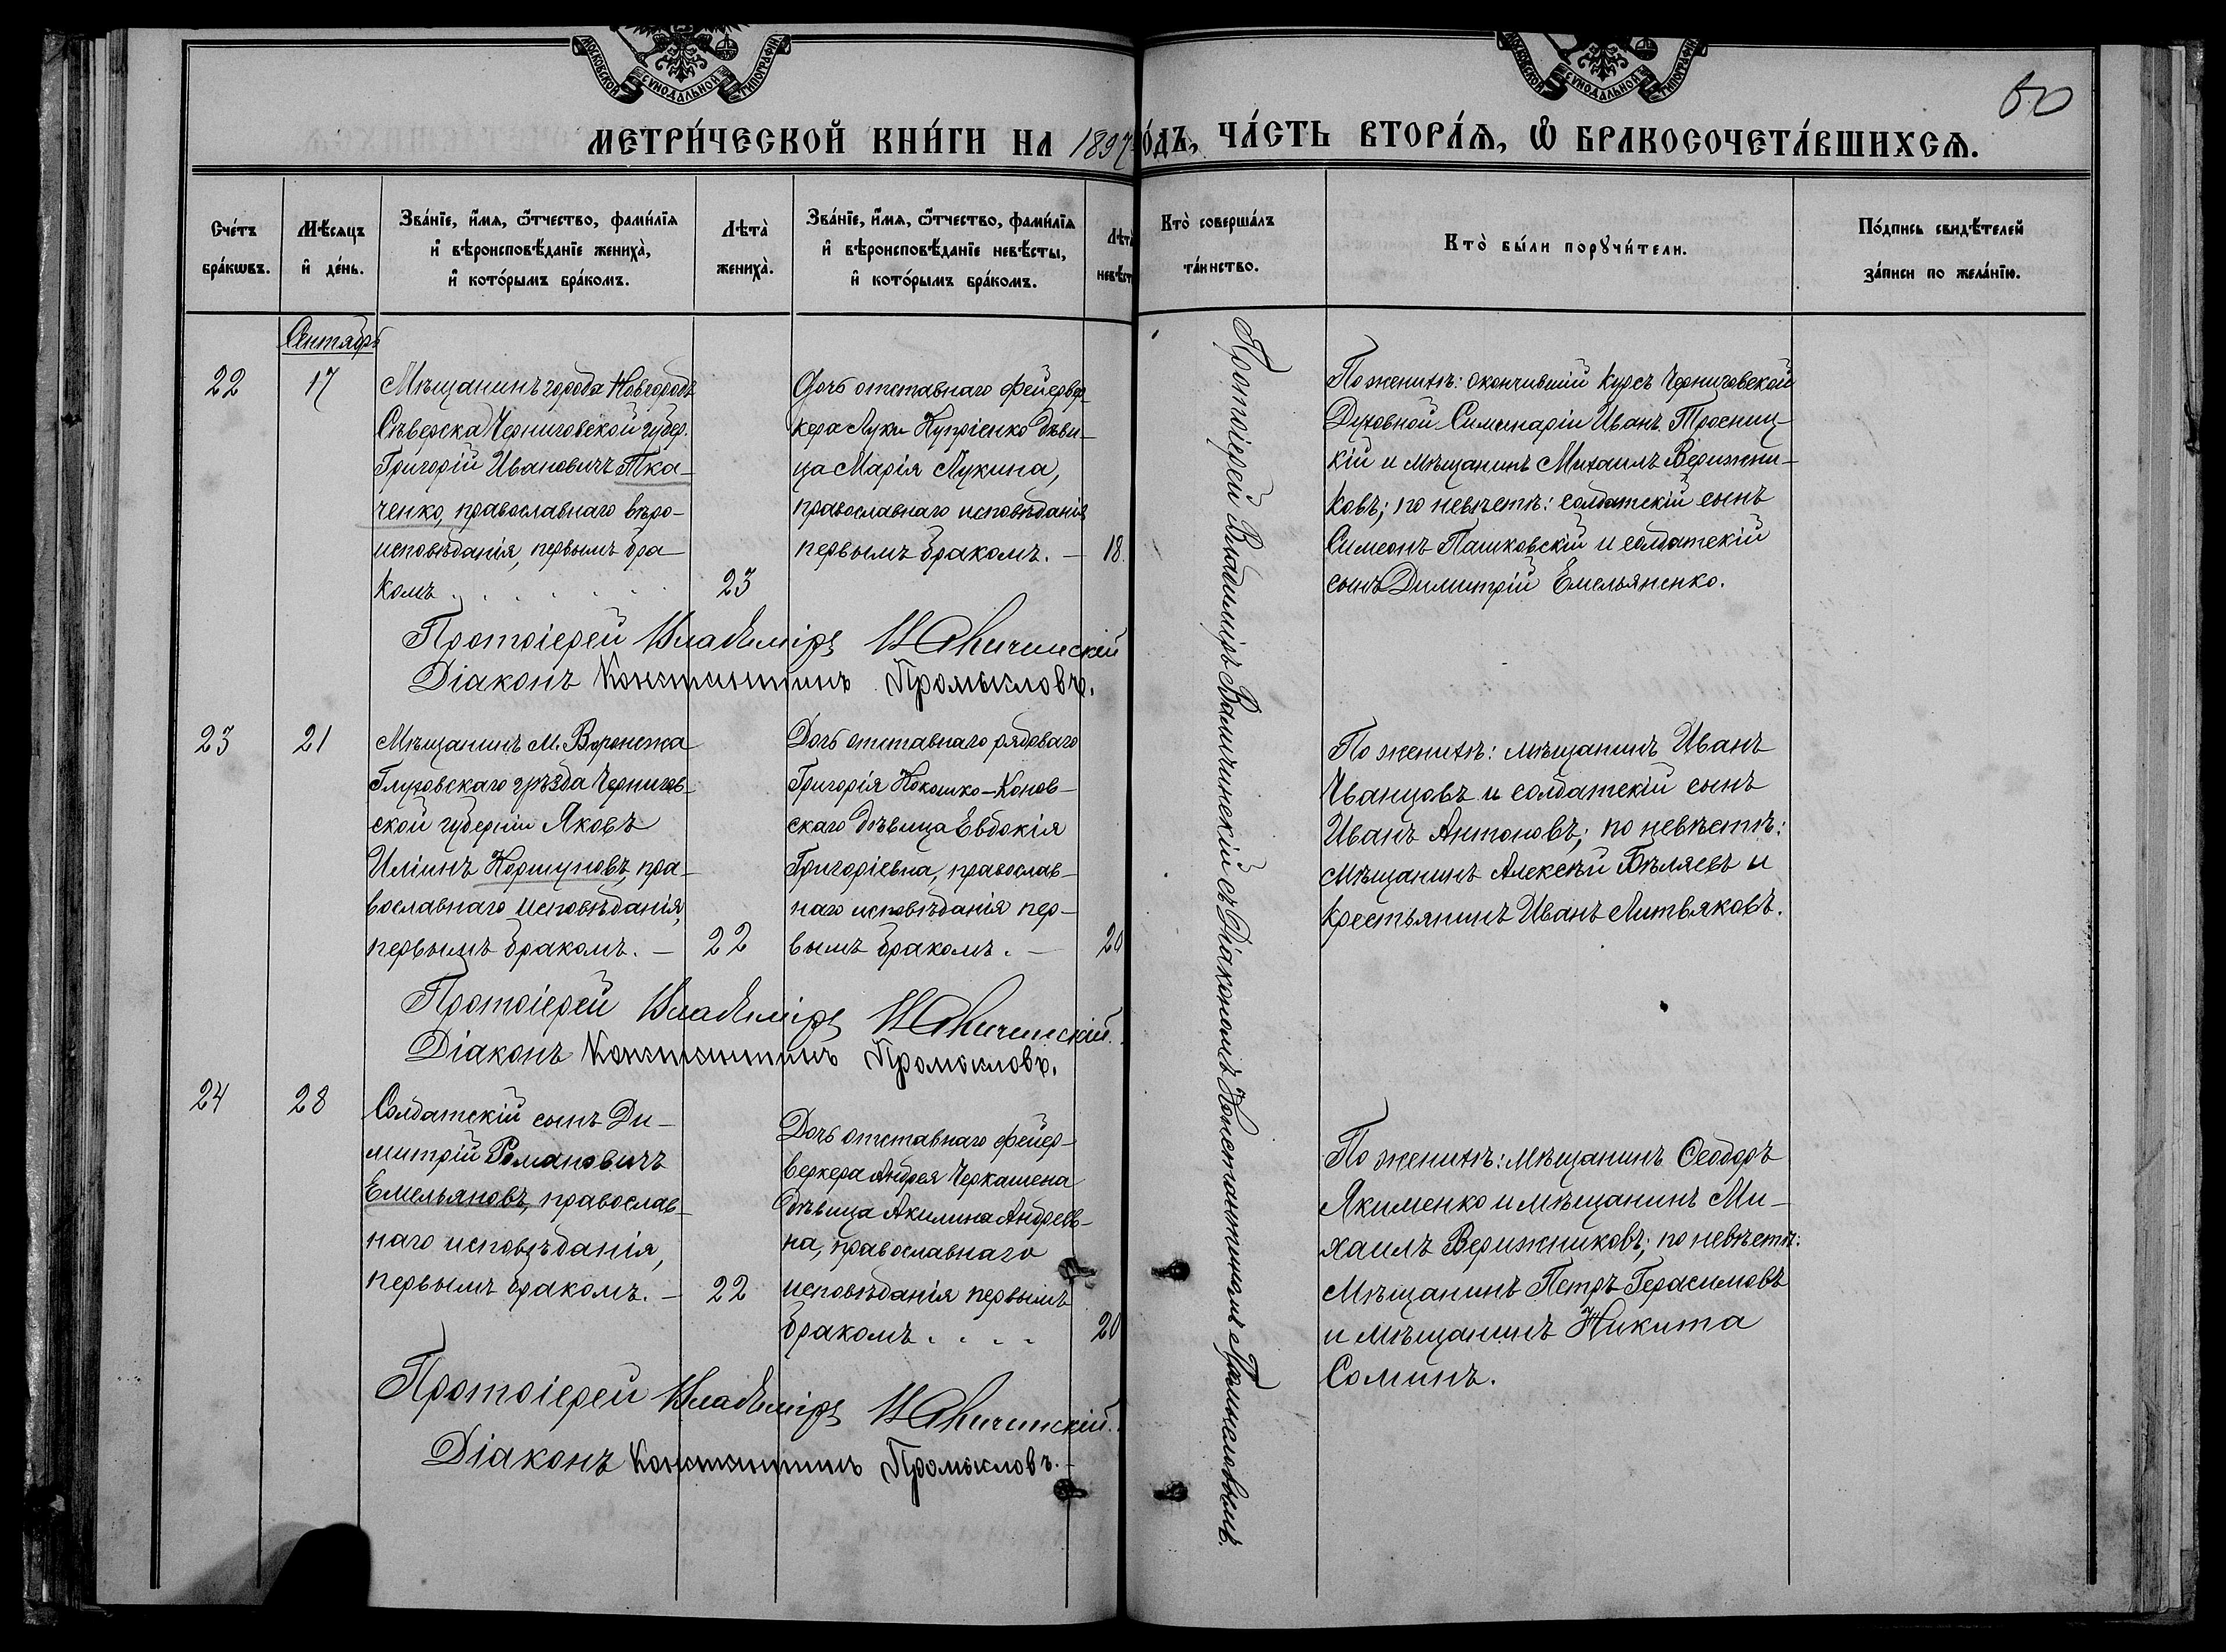 МОСКОВСКОЙ СѴНОДАЛЬНОЙ ТИПОГРАФІИ
МОСКОВСКОЙ СѴНОДАЛЬНОЙ ТИПОГРАФІИ
60
МЕТРИ́ЧЕСКОЙ КНИ́ГИ НА 1897 ГО́ДЪ, ЧА́СТЬ ВТОРА́Ѧ, Ѡ҆ БРАКОСОЧЕТА́ВШИХСѦ.
Сче́тъ
бра́кѡвъ.
Мѣ́сѧцъ
и҆ де́нь.
Зва́нїе, и҆́мѧ, ѻ҆́тчество, фами́лїѧ
и҆ вѣроисповѣ́данїе жениха̀,
и҆ кото́рымъ бра́комъ.
Лѣта̀
жениха̀.
Зва́нїе, и҆́мѧ, ѻ҆́тчество, фами́лїѧ
и҆ вѣроисповѣ́данїе невѣ́сты,
и҆ кото́рымъ бра́комъ.
Лѣта̀
невѣст
Кто̀ соверша́лъ
та́инство.
Кто̀ бы́ли порꙋчи́тели.
По́дпись свидѣ́телей
за́писи по жела́нїю.
Сентябрь
22
17
Мѣщанинъ города Новгородъ
Сѣверска Черниговской губер.
Григорій Ивановичъ Тка-
ченко, православнаго вѣро-
исповѣданія, первымъ бра
комъ . . . . . . .
23
Дочь отставнаго фейервер-
кера Луки Купріенко дѣви-
ца Марія Лукина,
православнаго исповѣданія
первымъ бракомъ. —
18.
По женихѣ: окончившій курсъ Черниговской
Духовной Симинаріи Иванъ Тросниц-
кій и мѣщанинъ Михаилъ Верижни-
ковъ; по невѣстѣ: солдатскій сынъ
Симеонъ Пашковскій и солдатскій
сынъ Димитрій Емельяненко.
Протоіерей Владиміръ
Діаконъ Константинъ Промысловъ.
23
21
Мѣщанинъ М. Воронежа
Глуховскаго уѣзда Чернигов-
ской губерніи Яковъ
Иліинъ Коршуновъ, пра-
вославнаго исповѣданія,
первымъ бракомъ. —
22
Дочь отставнаго рядоваго
Григорія Кокошко-Конов-
скаго дѣвица Евдокія
Григоріевна, православ-
наго исповѣданія пер-
вымъ бракомъ. —
20
По женихѣ: мѣщанинъ Иванъ
Иванцовъ и солдатскій сынъ
Иванъ Антоновъ; по невѣстѣ:
мѣщанинъ Алексѣй Бѣляевъ и
крестьянинъ Иванъ Литвяковъ.
Протоіерей Владиміръ
Діаконъ Константинъ Промысловъ.
24
28
Солдатскій сынъ Ди-
митрій Романовичъ
Емельяновъ, православ-
наго исповѣданія,
первымъ бракомъ. —
22
Дочь отставнаго фейер-
веркера Андрея Черкашена
дѣвица Акилина Андреев-
на, православнаго
исповѣданія первымъ
бракомъ . . . .
20
По женихѣ: мѣщанинъ Ѳеодоръ
Якименко и мѣщанинъ Ми-
хаилъ Верижниковъ; по невѣстѣ:
мѣщанинъ Петръ Герасимовъ
и мѣщанинъ Никита
Соминъ.
Протоіерей Владиміръ
Діаконъ Константинъ Промысловъ. —
Протоіерей Владиміръ съ Діакономъ Константиномъ Промысловымъ.